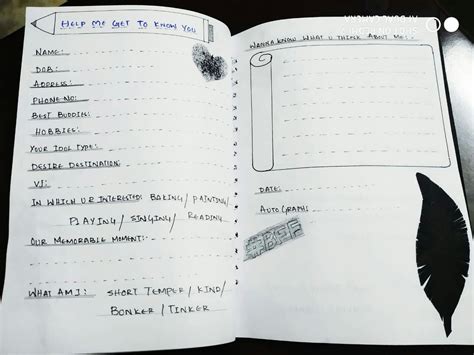 HELP ME GET TO KNOW YOU
NAME:
DOB:
ADDRESS:
PHONE NO:
BEST BUDDIES:
HOBBIES:
YOUR IDOL TYPE:
DESIRE DESTINATION:
VJ:
IN WHICH U R INTERESTED: BAKING / PAINTING/
PLAYING / SINGING / READING
OUR MEMORABLE MOMENT:
WHAT AM I: SHORT TEMPER / KIND/
BONKER / TINKER
WANNA KNOW WHAT U THINK ABOUT ME:-
DATE:
AUTOGRAPH:
#BFF